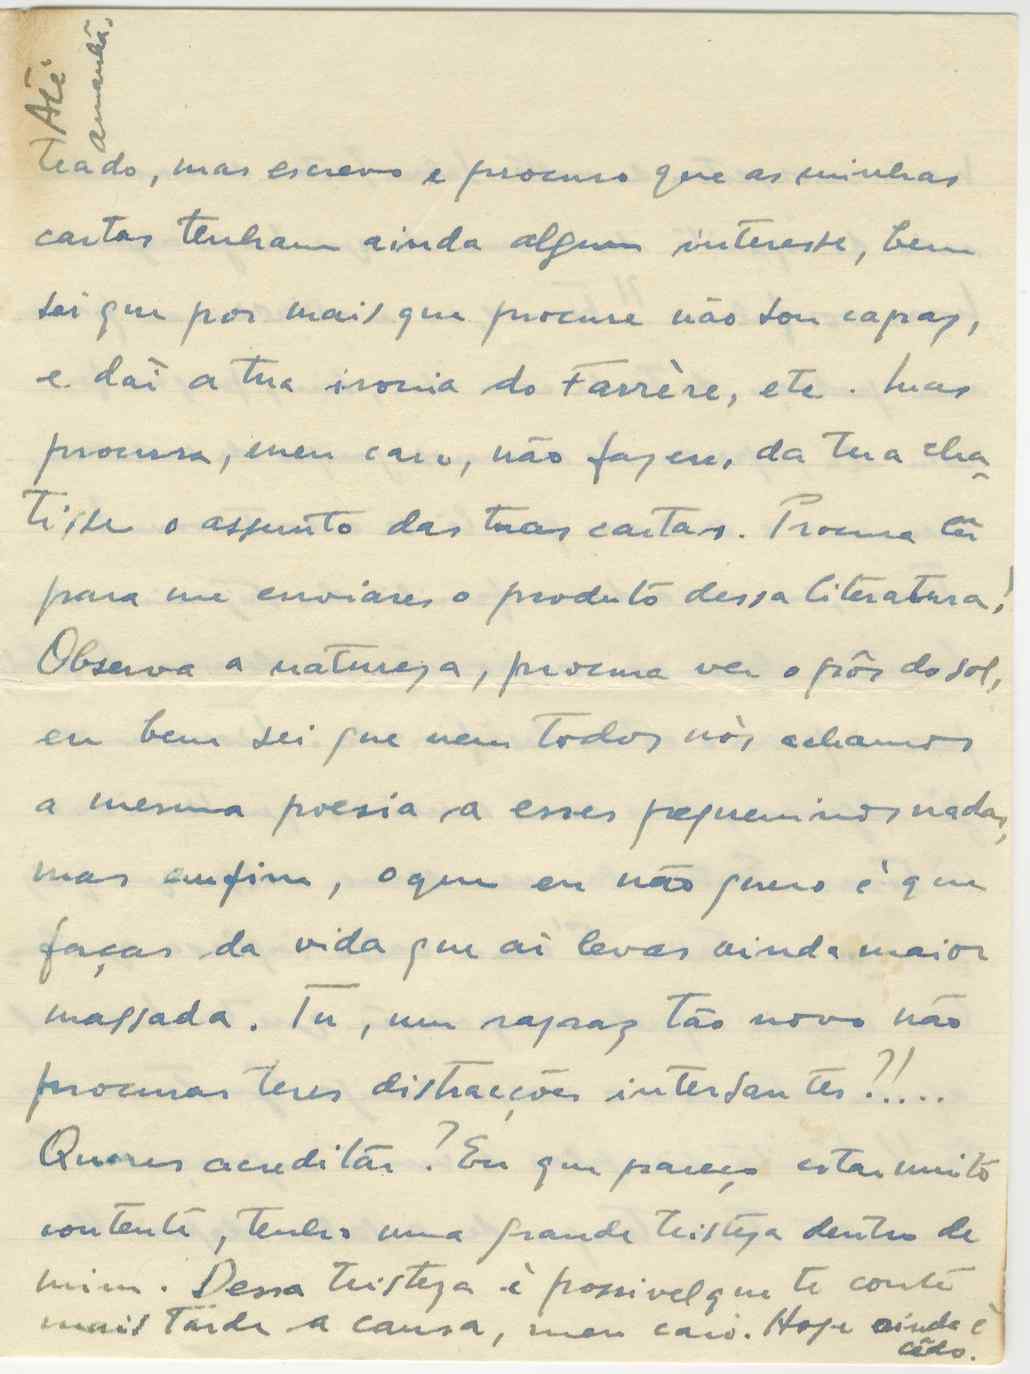 teado, mas escrevo e procuro que as minhas
cartas tenham ainda algum interesse, bem
sei que por mais que procure não sou capaz,
e daì a tua ironia do Farrère, etc. Mas
procura, meu caro, não fazeres da tua cha-
tisse o assunto das tuas cartas. Procura lêr
para me enviares o produto dessa literatura!
Observa a natureza, procura ver o pôr do sol,
eu bem sei que nem todos nòs achamos
a mesma poesia a esses pequeninos nadas,
mas emfim, o que eu não quero è que
faças da vida que aì levas ainda maior
massada. Tu, um rapaz tão novo não
procuras teres distracções intersantes?!....
Queres acreditár? Eu que pareço estar muito
contente, tenho uma grande tristeza dentro de
mim. Dessa tristeza è possivel que te conte
mais tarde a causa, meu caro. Hoje ainda è
cêdo.
Até
amanhã,